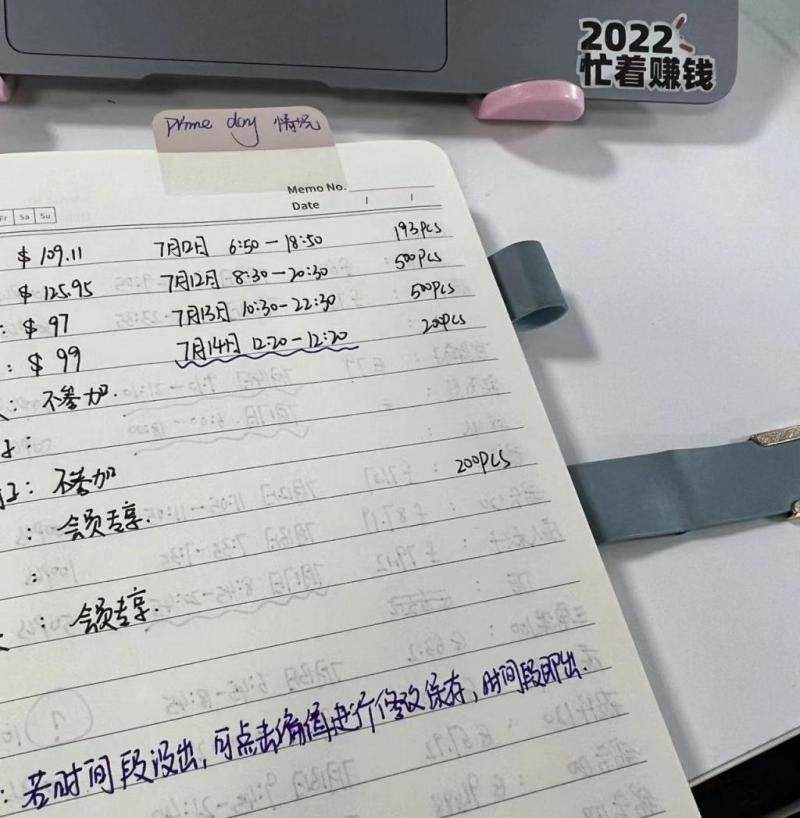 2022
忙着赚钱
Prime day 情况
Memo No.
Date / /
Fr Sa Su
$ 109.11 7月12日 6:50-18:50 193PCS
$ 125.95 7月12月 8:30-20:30 500PCS
: $ 97 7月13月 10:30-22:30 500PCS
: $ 99 7月14日 12:20-12:20 200PCS
: 不参加.
:
: 不参加 200PCS
: 会员专享.
:
: 会员专享.
: 若时间段没出, 可点击编辑进行修改保存, 时间段即出.